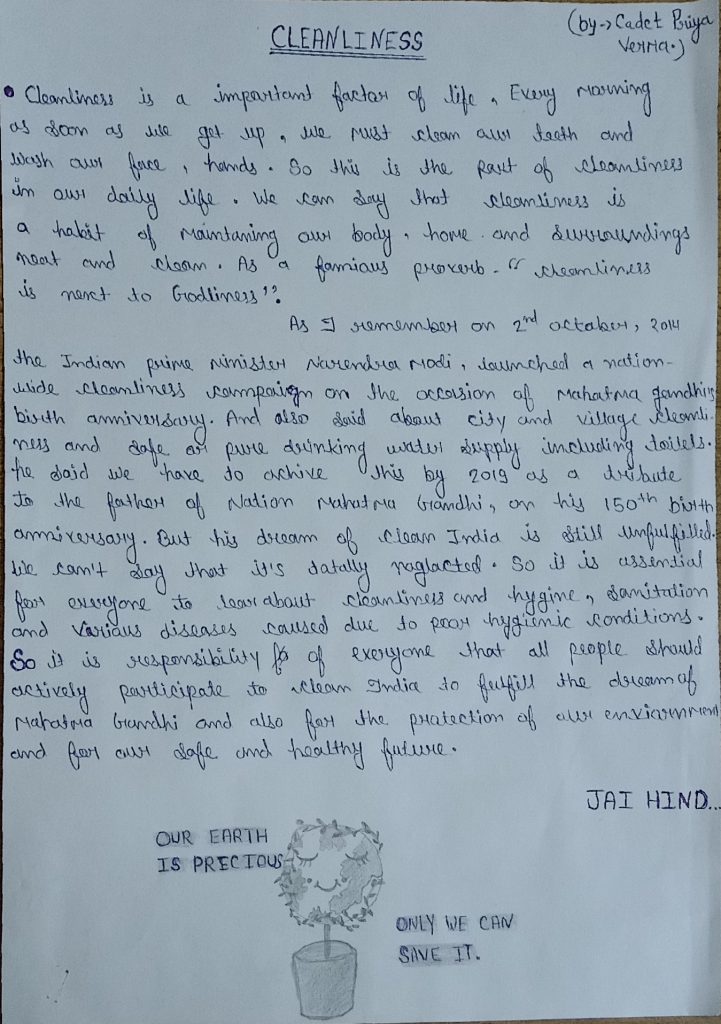 (by-> Cadet Priya
Verma.)
CLEANLINESS
• Cleanliness is a important factor of life, Every morning
as soon as we get up, we must clean our teeth and
wash our face, hands. So this is the part of cleanliness
in our daily life. We can say that cleanliness is
a habit of maintaning our body, home and surroundings
neat and clean. As a famious proverb - " cleanliness
is next to Godliness".
As I remember on 2nd october, 2014
the Indian prime minister Narendra Modi, launched a nation-
wide cleanliness campaign on the occasion of Mahatma gandhi's
birth anniversary. And also said about city and village cleanli-
ness and safe or pure drinking water supply including toilets.
he said we have to achive this by 2019 as a tribute
to the father of Nation Mahatma Gandhi, on his 150th birth
anniversary. But his dream of clean India is still unfulfilled.
We can't say that it's totally naglacted. So it is assential
for everyone to lear about cleanliness and hygine, sanitation
and various diseases caused due to poor hygienic conditions.
So it is responsibility of everyone that all people should
actively participate to clean India to fulfill the dream of
Mahatma Gandhi and also for the protection of our enviarnment
and for our safe and healthy future.
JAI HIND...
OUR EARTH
IS PRECIOUS
ONLY WE CAN
SAVE IT.